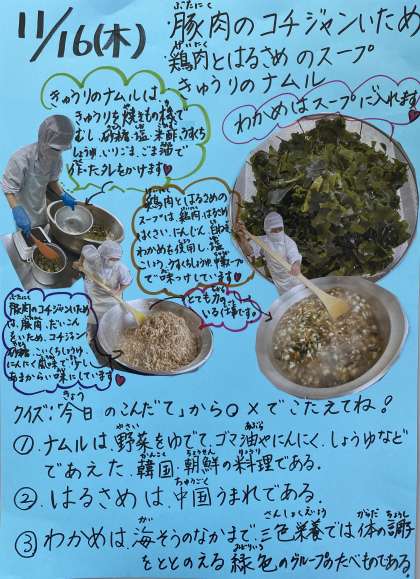 11/16(木)
・豚肉のコチジャンいため
・鶏肉とはるさめのスープ
・きゅうりのナムル
わかめはスープに入れます
きゅうりのナムルは、
きゅうりを焼きもの機で
むし、砂糖、塩、米酢、うすくち
しょうゆ、いりごま、ごま油で
作ったタレをかけます
鶏肉とはるさめの
スープは、鶏肉、はるさめ
はくさい、にんじん、
わかめを使用し、塩、
こしょう、うすくちしょうゆ、中華スープ
で味つけしています
豚肉のコチジャンいため
は、豚肉、だいこん
をいため、コチジャン
砂糖、こいくちしょうゆ、
にんにく風味で少し
あまからい味にしています
とても力の
いる仕事です。
クイズ:「今日のこんだて」から○×でこたえてね!
①ナムルは、野菜をゆでて、ゴマ油やにんにく、しょうゆなど
であえた、韓国・朝鮮の料理である。
②はるさめは、中国うまれである。
③わかめは、海そうのなかまで、三色栄養では、体の調子
をととのえる緑色のグループのたべものである。